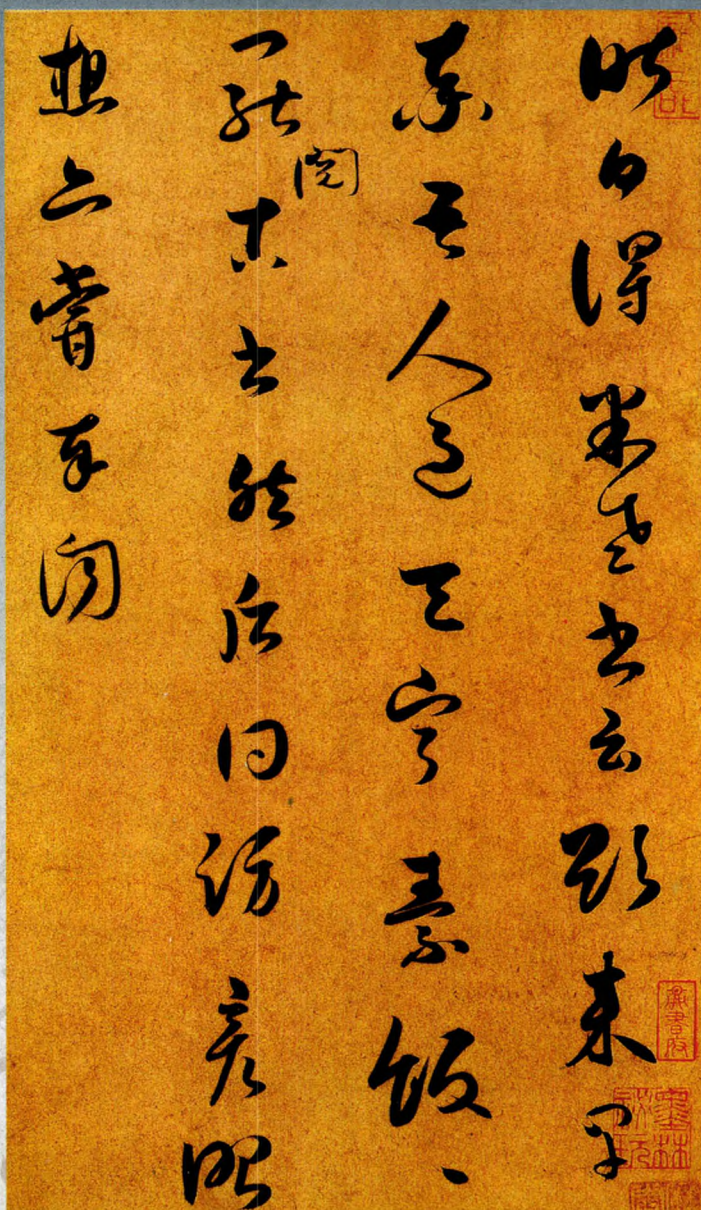 昨日得米老書云欲來早
率吾人過天寧素飯〻
罷閱古書然后同訪彥昭
想亦嘗奉聞